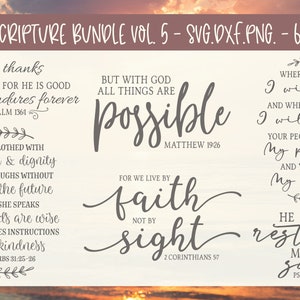 CRIPTURE BUNDLE VOL. 5 - SVG.DXF.PNG. - 6
thanks
FOR HE IS GOOD
ndures forever
ALM 1361
LOTHED WITH
h & dignity
AUGHS WITHOUT
the future
SHE SPEAKS
ds are wise
ES INSTRUCTIONS
kindness
RBS 31:25-26
BUT WITH GOD
ALL THINGS ARE
possible
MATTHEW 1926
FOR WE LIVE BY
faith
NOT BY
sight
2 CORINTHIANS 57
WHER
I wi
AND WH
I wil
YOUR PE
My p
AND Y
My
HE
resto
M
so
PS